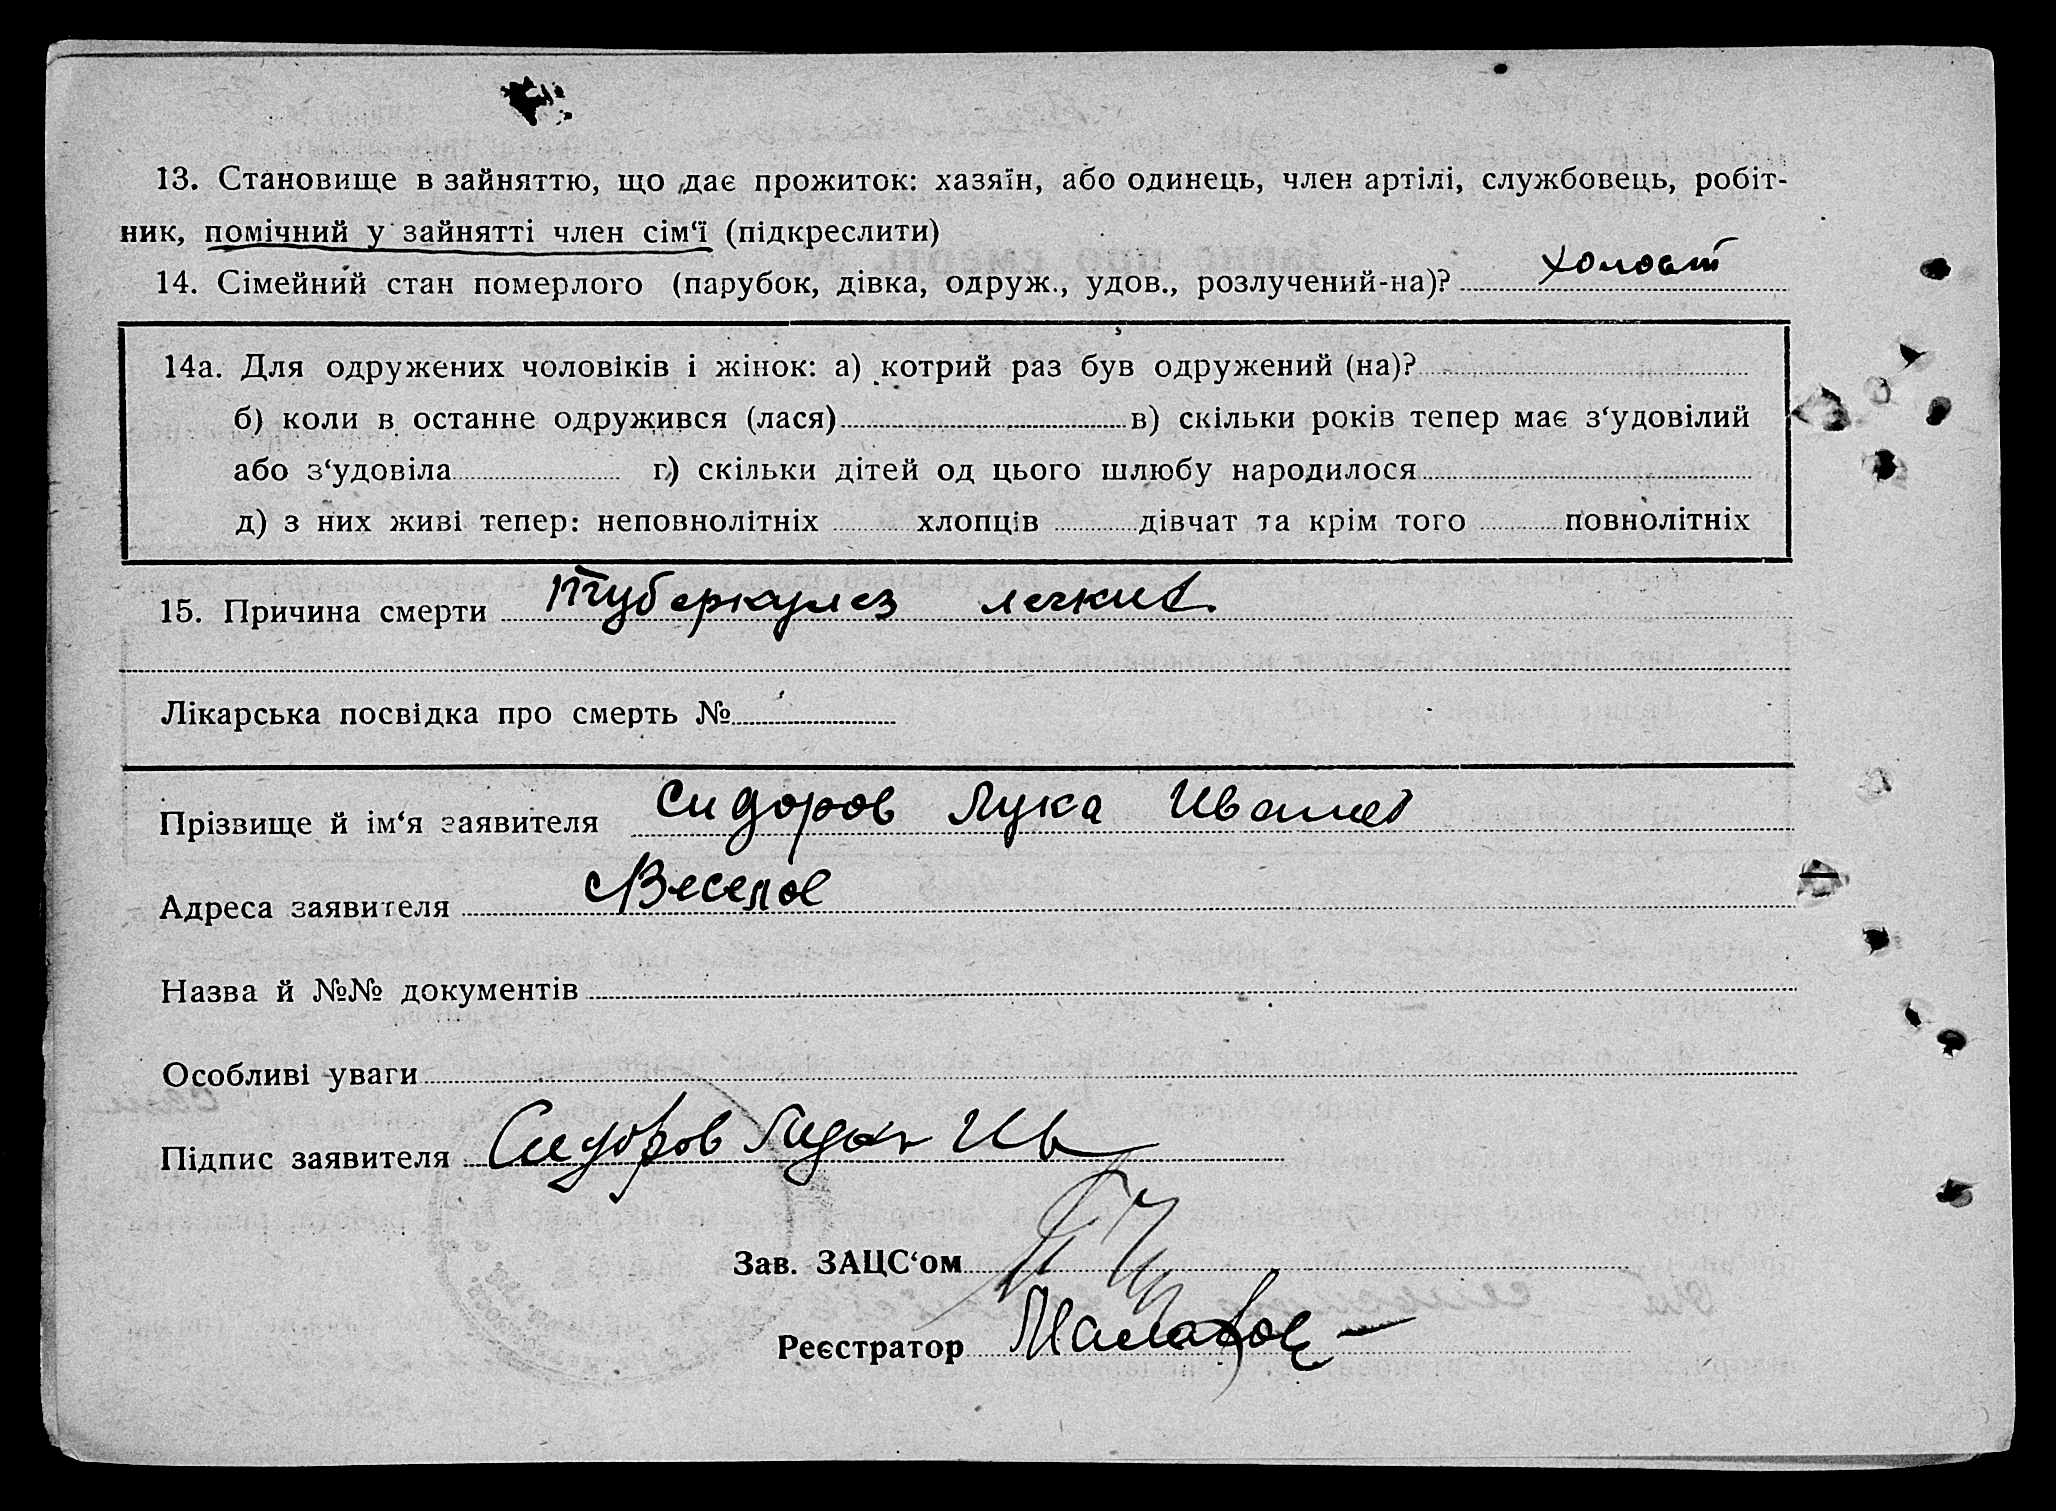 13. Становище в зайняттю, що дає прожиток: хазяїн, або одинець, член артілі, службовець, робіт-
ник, помічний у зайнятті член сім‘ї (підкреслити)
14. Сімейний стан померлого (парубок, дівка, одруж., удов., розлучений-на)? холост
14а. Для одружених чоловіків і жінок: а) котрий раз був одружений (на)?
б) коли в останнє одружився (лася) в) скільки років тепер має з‘удовілий
або з‘удовіла г) скільки дітей од цього шлюбу народилося
д) з них живі тепер: неповнолітніх хлопців дівчат та крім того повнолітніх
15. Причина смерти туберкулез легких
Лікарська посвідка про смерть №
Прізвище й ім‘я заявителя Сидоров Лука Иванов
Адреса заявителя с Веселое
Назва й №№ документів
Особливі уваги
Підпис заявителя Сидоров Лука Ив
Зав. ЗАЦС‘ом
Реєстратор